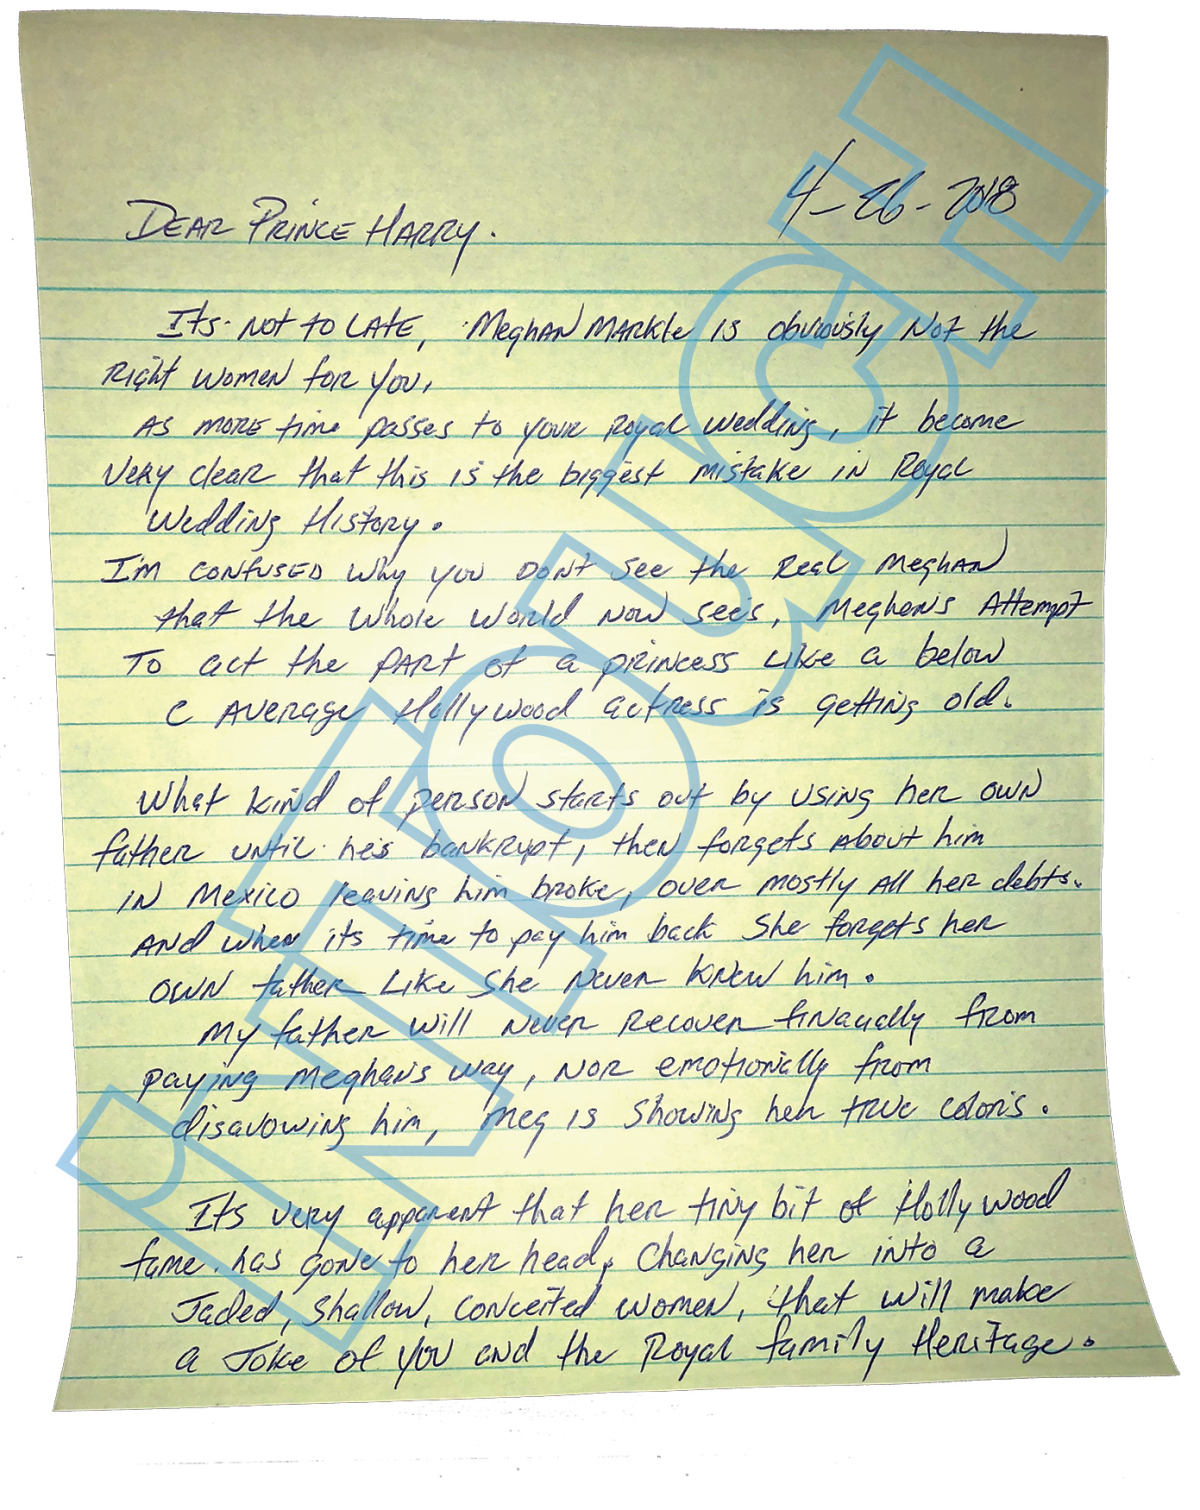 4-26-2018
DEAR PRINCE HARRY.
Its. Not to LATE, Meghan Markle is obviously Not the
Right women for you,
As more time passes to your Royal wedding, it become
Very clear that this is the biggest mistake in Royal
Wedding History.
I'm confused why you Don't see the Real Meghan
that the whole world Now sees, Meghan's Attempt
To act the PART of a princess Like a below
C Average Hollywood actress is getting old.
What kind of person starts out by using her own
father until he's bankrupt, then forgets About him
in Mexico leaving him broke, over mostly All her debts.
And when its time to pay him back She forgets her
own father Like She Never Knew him.
My father will Never Recover finacially from
paying Meghans way, Nor emotionally from
disavowing him, Meg is Showing her true color's.
It's very apparent that her tiny bit of Hollywood
fame. has gone to her head, Changing her into a
Jaded, Shallow, conceited women, that will make
a Joke of you and the Royal family Heritage.
INTOUCH